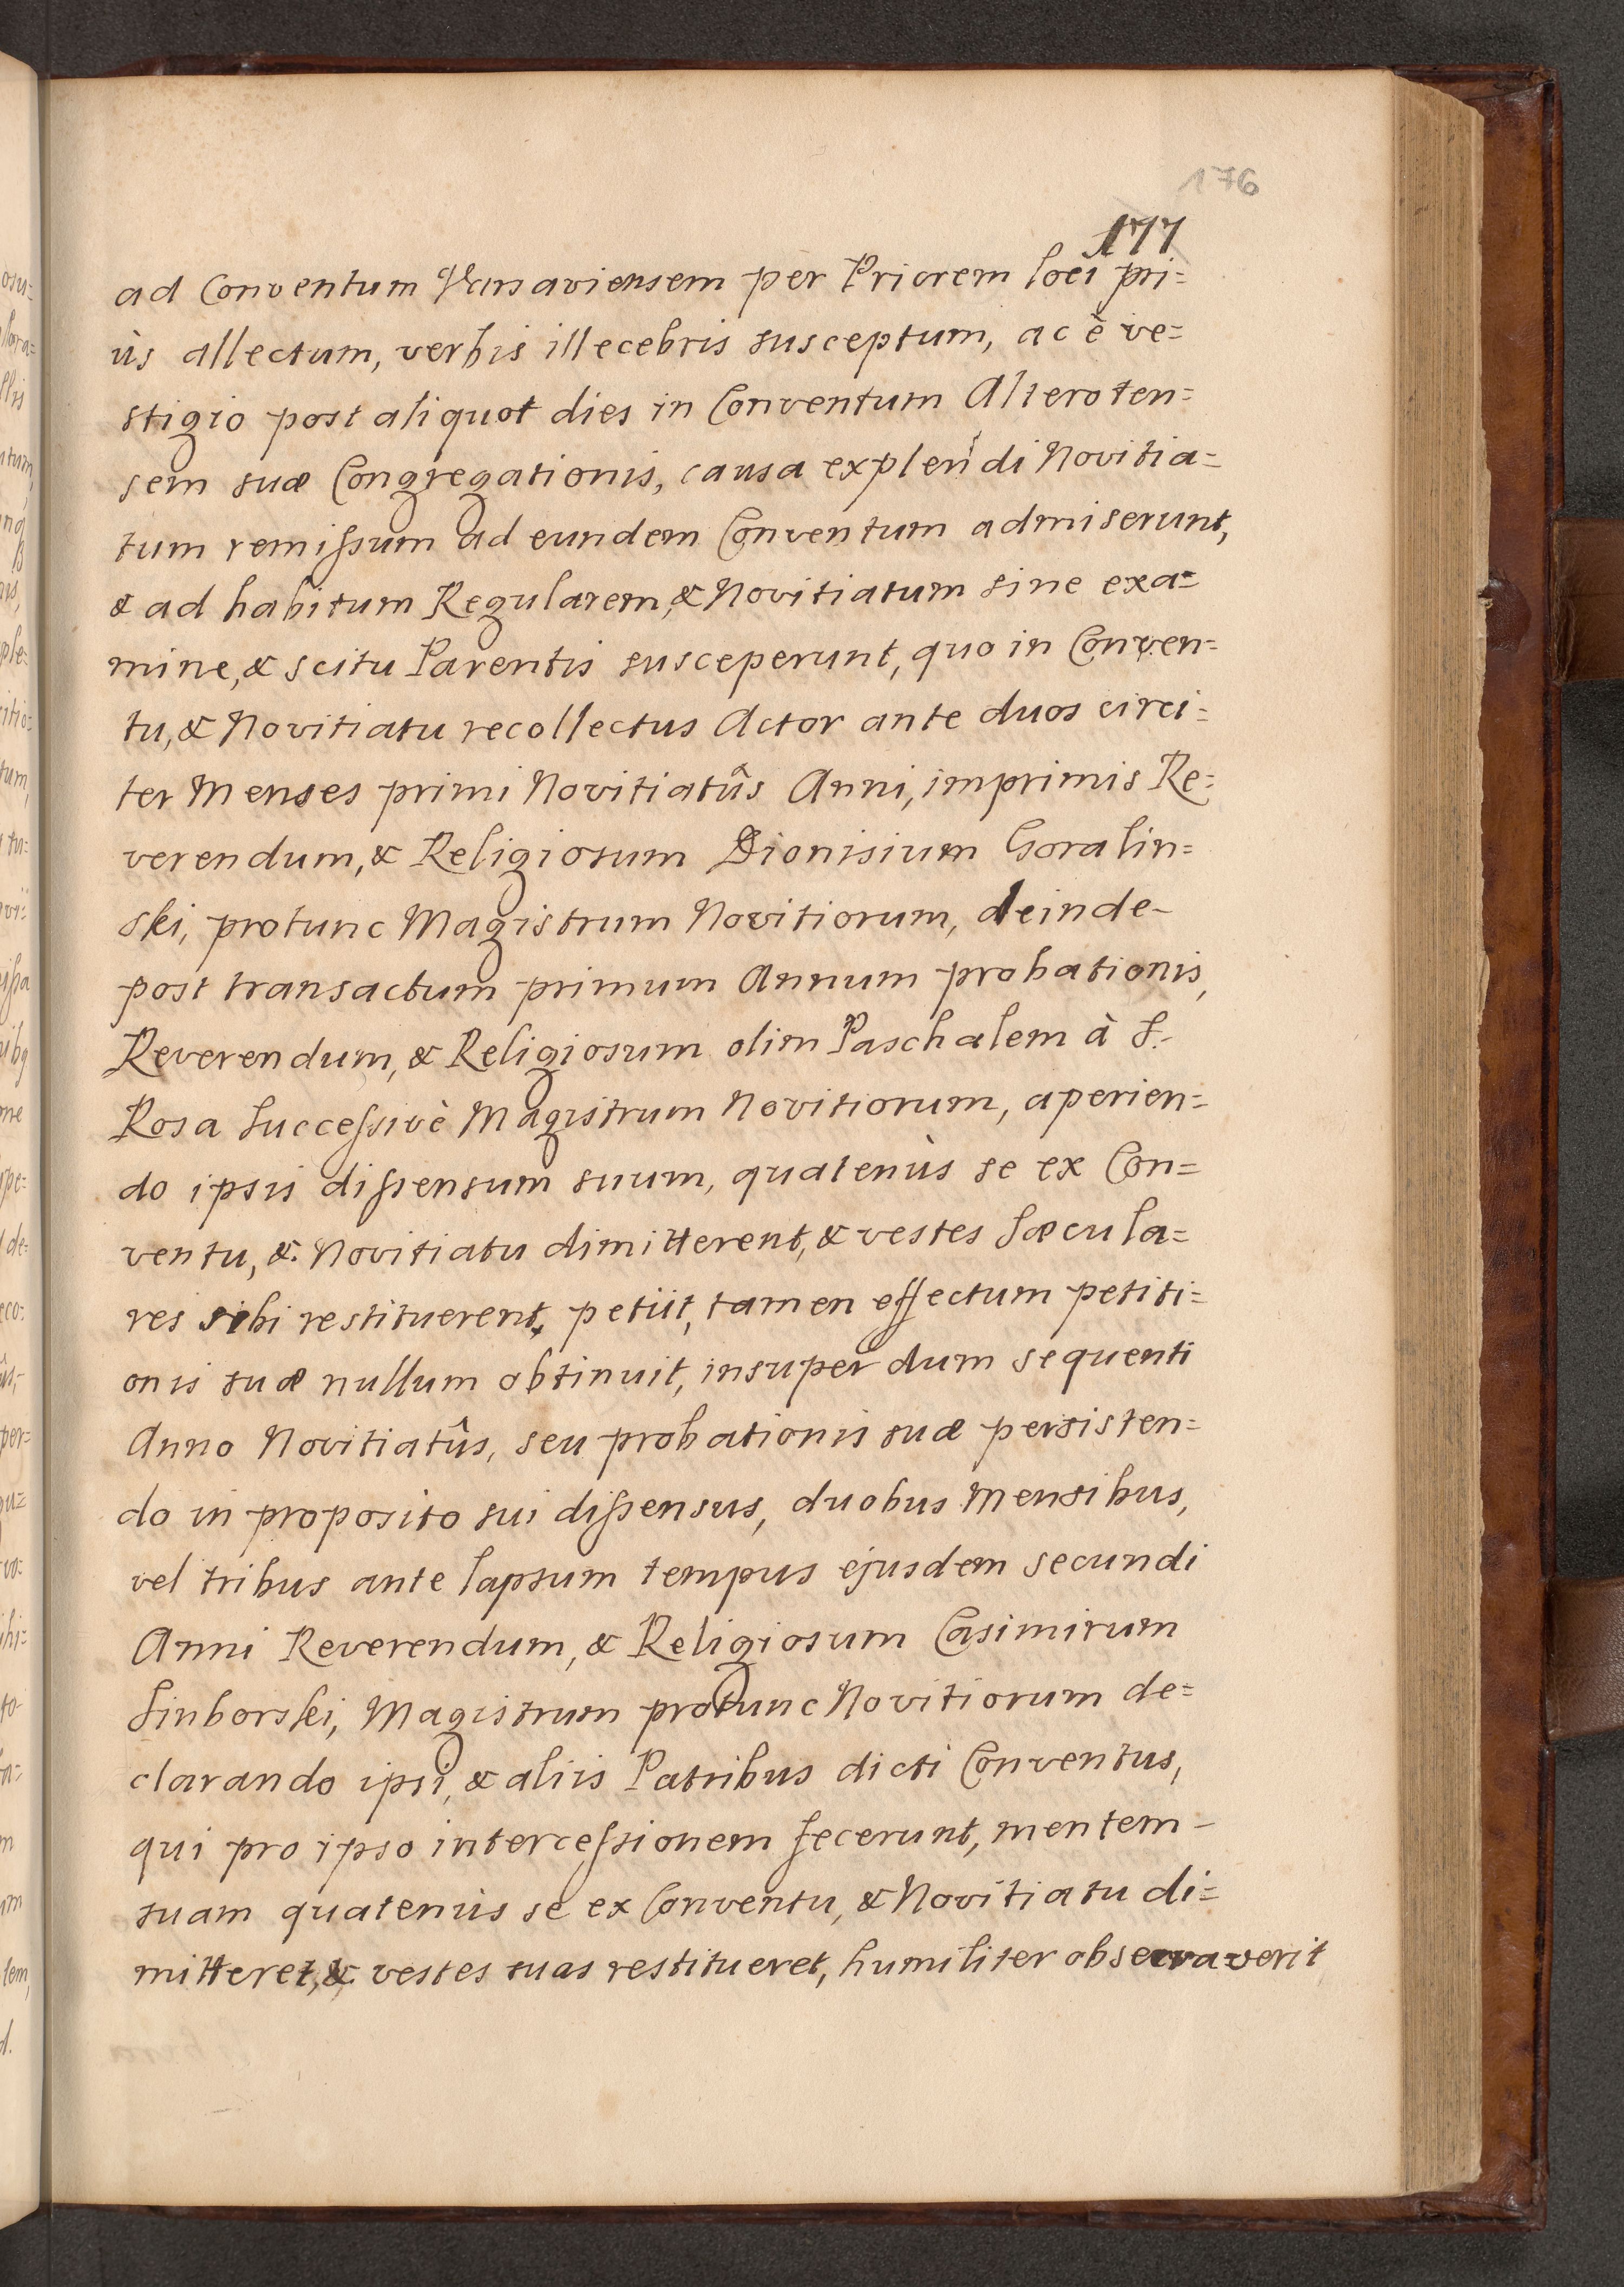 176
177
ad Conventum Varsaviensem per Priorem loci pri=
ùs allectum, verbis illecebris susceptum, ac è ve=
stigio post aliquot dies in Conventum Alteroten=
sem suæ Congregationis, causa explendi Novitia=
tum remissum ad eundem Conventum admiserunt,
& ad habitum Regularem, & Novitiatum sine exa=
mine, & scitu Parentis susceperunt, quo in Conven=
tu, & Novitiatu recollectus Actor ante duos circi=
ter Menses primi Novitiatûs Anni, imprimis Re=
verendum, & Religiosum Dionisium Goralin=
ski, protunc Magistrum Novitiorum, deinde-
post transactum primum Annum probationis,
Reverendum, & Religiosum olim Paschalem à S.
Rosa successivè Magistrum Novitiorum, aperien=
do ipsis dissensum suum, quatenùs se ex Con=
ventu, & Novitiatu dimitterent, & vestes sæcula=
res sibi restituerent, petiit, tamen effectum petiti=
onis suæ nullum obtinuit, insuper dum sequenti
Anno Novitiatûs, seu probationis suæ persisten=
do in proposito sui dissensus, duobus Mensibus,
vel tribus ante lapsum tempus ejusdem secundi
Anni Reverendum, & Religiosum Casimirum
Sinborski, Magistrum protunc Novitiorum de=
clarando ipsi, & aliis Patribus dicti Conventus,
qui pro ipso intercessionem fecerunt, mentem-
suam quatenùs se ex Conventu, & Novitiatu di=
mitteret, & vestes suas restitueret, humiliter observaverit